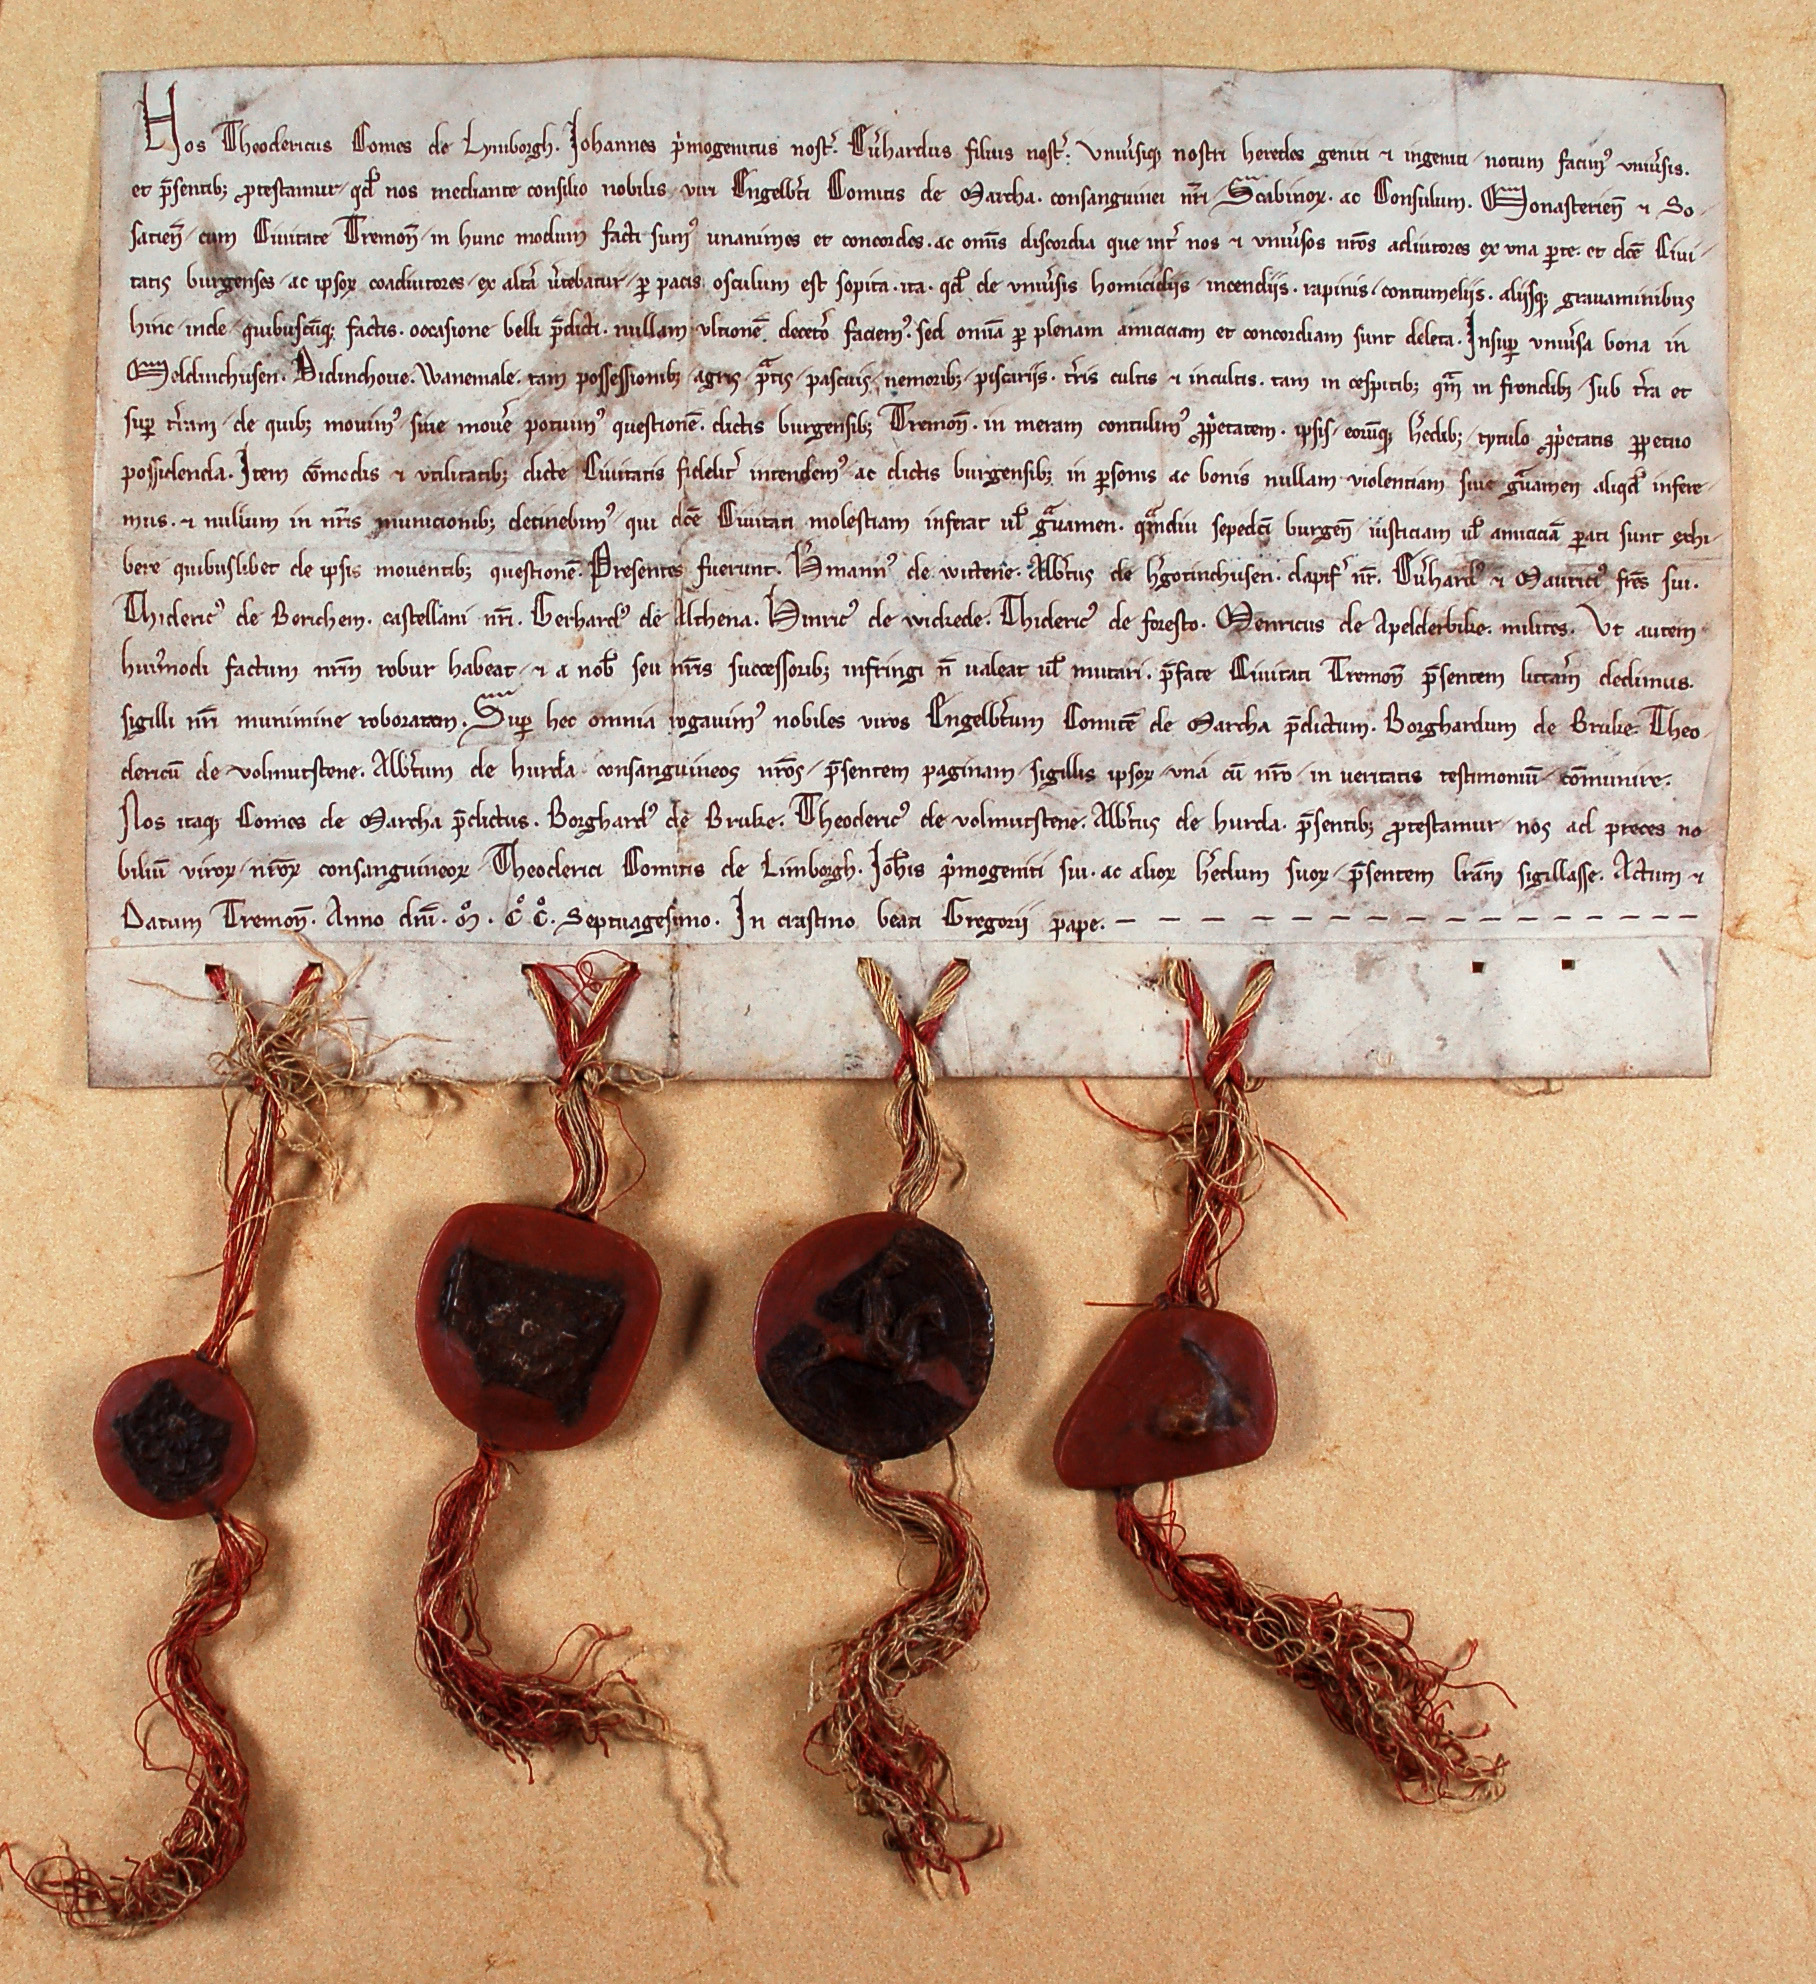 Nos Theodericus Comes de Lymborgh. Johannes p̓mogenitus nost̓. Eu̓hardus filius nost̓. Vniu̓siq; nostri heredes geniti ⁊ ingeniti / notum facim⁹ vniu̓sis.
et p̄sentib; ꝓtestamur / qd̓ nos mediante consilio nobilis viri Engelb̓ti Comitis de Marcha. consanguinei nr̄i / Scabinoꝝ. ac Consulum. Monasterien̄ ⁊ So-
satien̄ / cum Ciuitate Tremon̄ / in hunc modum facti sum⁹ unanimes et concordes. ac om̄is discordia que int̓ nos ⁊ vniu̓sos nr̄os adiutores ex vna ꝑte. et dc̄e Ciui-
tatis burgenses / ac ipsoꝝ coadiutores / ex alt̓a v̓tebatur / ꝑ pacis osculum est sopita. ita. qd̓ de vniu̓sis homicidijs / incendijs. rapinis / contumelijs. alijsq; grauaminibus
hinc / inde / quibuscūq; factis. occasione belli p̄dicti. nullam vltionē decet̓o faciem⁹. sed omīa ꝑ plenam amiciciam et concordiam sunt deleta. Insuꝑ vniu̓sa bona in
Meldinchusen. Didinchoue. Wanemale. tam possessionib; agris / pᵃtis / pascuis / nemorib; / piscarijs. t̓ris cultis ⁊ incultis. tam in cespitib; qᵃm in frondib; / sub t̓ra et
suꝑ t̓ram / de quib; mouim⁹ / siue mou̓e potuim⁹ questionē. dictis burgensib; Tremon̄. in meram contulim⁹ ꝓp̓etatem. ipsis / eorūq; h̓edib; / tytulo ꝓp̓etatis ꝑpetuo
possidenda. Item cōmodis ⁊ vtilitatib; dicte Ciuitatis fidelit̓ intendem⁹ / ac dictis burgensib; in ꝑsonis ac bonis nullam violentiam siue gᵃuamen aliqd̓ infere-
mus. ⁊ nullum in nr̄is municionib; detinebim⁹ / qui dc̄e Ciuitati molestiam inferat ul̓ gᵃuamen. qᵃmdiu sepedc̄i burgen̄ iusticiam ul̓ amiciciā ꝑati sunt exhi-
bere quibuslibet de ipsis mouentib; questionē. Presentes fuerunt. H̓mann⁹ de wittene. Alb̓tus de h̓gotinchusen. dapif̓ nr̄. Eu̓hard⁹ ⁊ Maurici⁹ fr̄es sui.
Thideric⁹ de Berichem. castellani nr̄i. Gerhard⁹ de Althena. Hinric⁹ de wickede. Thideric⁹ de foresto. Henricus de Apelderbike. milites. Vt autem
hui̓modi factum nr̄m robur habeat / ⁊ a nob̓ seu nr̄is successorib; infringi n̄ ualeat ul̓ mutari. p̄fate Ciuitati Tremon̄ p̄sentem litt̓am dedimus.
sigilli nr̄i munimine roboratam. Suꝑ hec omnia rogauim⁹ nobiles viros Engelb̓tum Comitē de Marcha p̄dictum. Borghardum de Bruke. Theo-
dericū de volmutstene. Alb̓tum de hurda consanguineos nr̄os / p̄sentem paginam / sigillis ipsoꝝ / vna cū nr̄o / in ueritatis testimoniū / cōmunire.
Nos itaq; Comes de Marcha p̄dictus. Borghard⁹ de Bruke. Theoderic⁹ de volmutstene. Alb̓tus de hurda. p̄sentib; ꝓtestamur / nos ad preces no-
biliū viroꝝ / nr̄oꝝ consanguineoꝝ / Theoderici Comitis de Limborgh. Joh̓is p̓mogeniti sui. ac alioꝝ h̓edum suoꝝ / p̄sentem lr̄am sigillasse. Actum ⁊
Datum Tremon̄. Anno dn̄i. M̊. C̊ C̊. Septuagesimo. In crastino beati Gregorij pape.